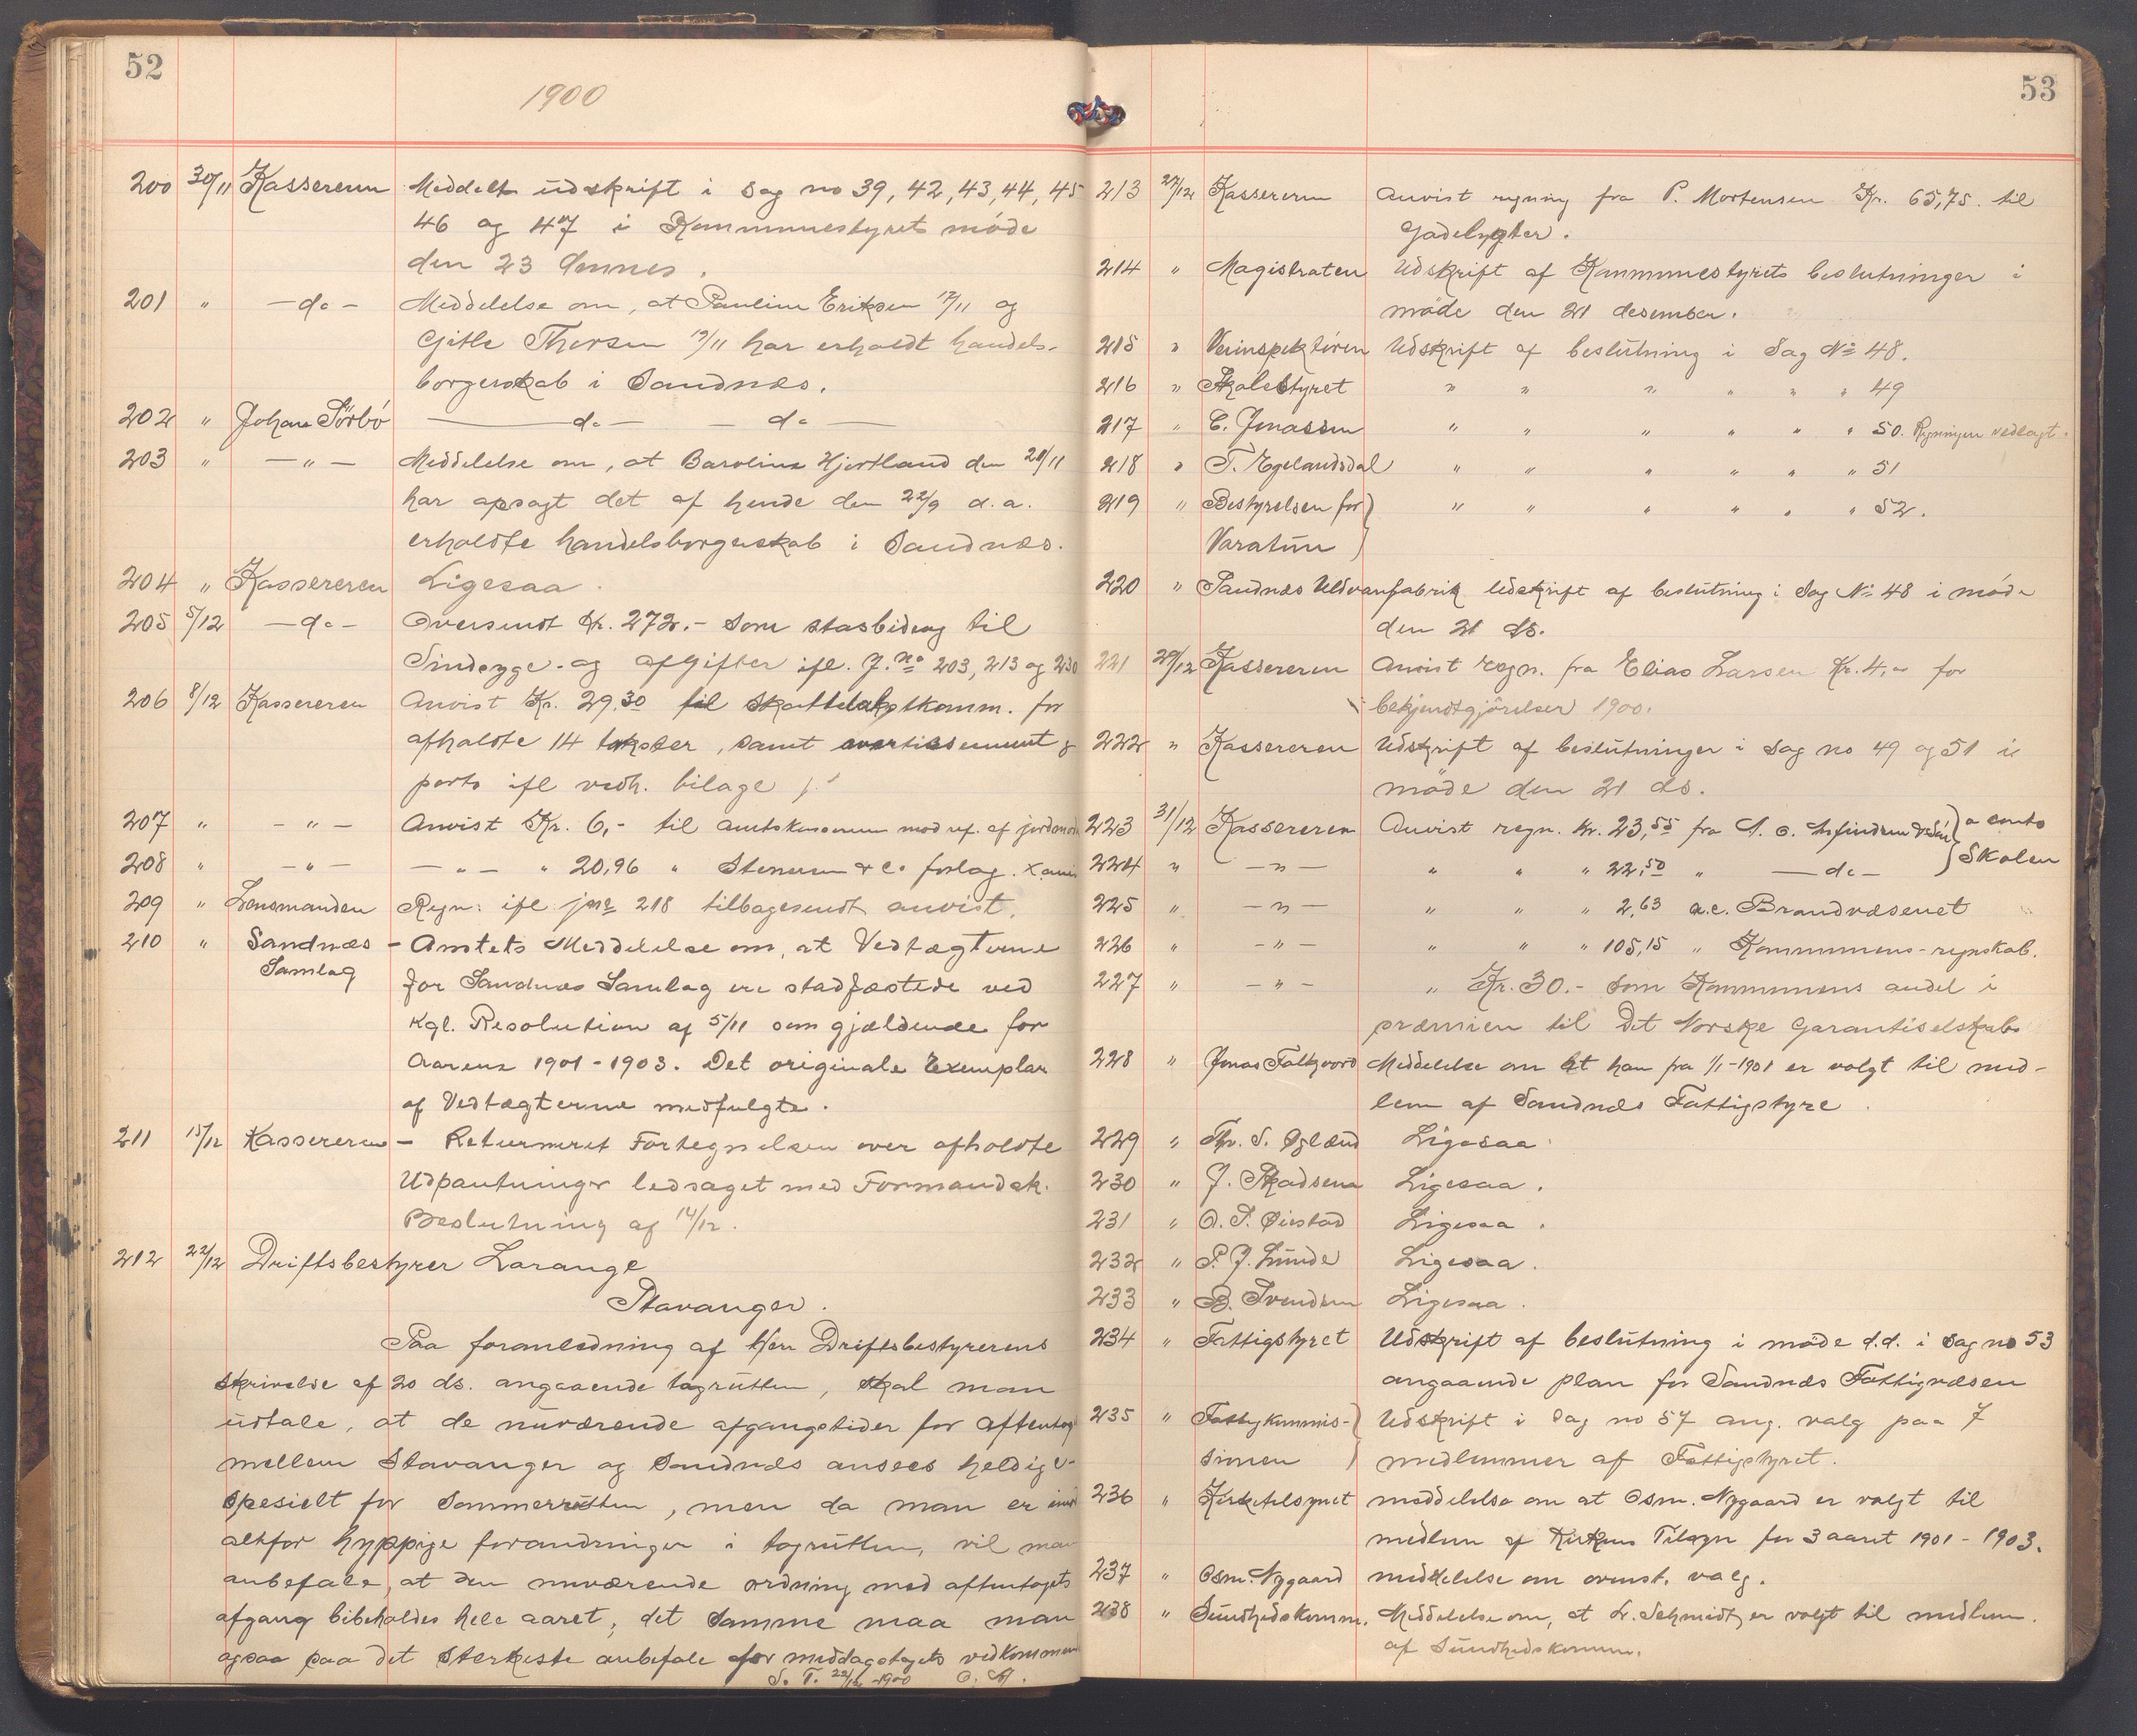 52
1900
200 30/11 Kassereren Meddelt udskrift i sag no 39, 42, 43, 44, 45
46 og 47 i Kommunestyrets møde
den 23 dennes.
201 " - do - Meddelelse om, at Pauline Eriksen 17/11 og
Gitle Thorsen 12/11 har erholdt handels-
borgerskab i Sandnæs.
202 " Johan Sörbö - do - - do -
203 " - " - Meddelelse om, at Baroline Hjortland den 21/11
har opsagt det af hende den 22/9 d. a.
erholdte handelsborgerskab i Sandnæs.
204 " Kassereren Ligesaa.
205 5/12 - do - Oversendt Kr. 272.- som stasbidrag til
Sindsyge- og afgifter ifl. J. no 203, 213 og 230
206 8/12 Kassereren Anvist Kr. 29.30 til skattetakstkomm. for
afholdte 14 takster, samt avertissement &
porto ifl vedh. bilage
207 " - " - Anvist Kr. 6,- til amtskassereren mod ref. af
208 " - " - - " - " 20,96 " Stenersen & Co forlag.
209 " Lensmanden Regn: ifl jno 218 tilbagesendt anvist.
210 " Sandnæs - Amtets Meddelelse om, at Vedtægterne
Samlag for Sandnæs Samlag ere stadfæstede ved
Kgl. Resolution af 5/11 som gjældende for
Aarene 1901-1903. Det originale Exemplar
af Vedtægterne medfulgte.
211 15/12 Kassereren - Returneret Fortegnelsen over afholdte
Udpantninger ledsaget med Formandsk.
Beslutning af 14/12.
212 22/12 Driftsbestyrer Larange
Stavanger.
Paa foranledning af Herr Driftsbestyrerens
skrivelse af 20 ds. angaaende togrütten, skal man
üdtale, at de nüværende afgangstider for aftentog
mellem Stavanger og Sandnæs ansees heldig-
spesielt for Sommerrütten, men da man er imod
altfor hyppige forandringer i togrütten, vil man
anbefale, at den nuværende ordning med aftentogets
afgang bibeholdes hele aaret; det samme maa man
ogsaa paa det sterkeste anbefale for middagstogets vedkommen
S. T. 22/12 1900 O. N.
53
213 27/12 Kassereren Anvist regning fra P. Mortensen Kr. 65,75. til
Gadelygter.
214 " Magistraten Udskrift af Kommunestyrets beslutninger i
møde den 21 desember.
215 " Veiinspektören Udskrift af beslütning i Sag No 48.
216 " Skolestyret " " " " " " 49
217 " C. Jonassen " " " " " " 50. Regningen vedlagt.
218 " T. Egelandsdal " " " " " " 51
219 " Bestyrelsen for " " " " " " 52.
Varatün
220 " Sandnæs Uldvarefabrik Udskrift af beslütning i Sag No 48 i møde
den 21 ds.
221 29/12 Kassereren Anvist regn. fra Elias Larsen Kr. 4,- for
bekjendtgjörelser 1900.
222 " Kassereren Udskrift af beslütninger i sag no 49 og 51 i
møde den 21 ds.
223 31/12 Kassereren Anvist regn. Kr. 23,55 fra a conto
224 " - " - " " " 22,50 " - do - Skolen
225 " - " - " " " 2,63 a.c. Brandvæsenet
226 " - " - " " " 105,15 " Kommunens-regnskab.
227 " - " - " Kr. 30.- som Kommunens andel i
præmien til Det Norske Garantiselskab
228 " Jonas Folkvord Meddelelse om at han fra 1/1-1901 er valgt til med-
lem af Sandnæs Fattigstyre.
229 " Th. S. Øglænd Ligesaa.
230 " J. Skadsem Ligesaa.
231 " O. T. Øiestad Ligesaa.
232 " P. J. Lünde Ligesaa.
233 " B. Svendsen Ligesaa.
234 " Fattigstyret Udskrift af beslütning i møde d.d. i sag no 53
angaaende plan for Sandnæs Fattigvæsen
235 " Fattigkommis- Udskrift i Sag no 57 ang. valg paa 7
sionen medlemmer af Fattigstyret.
236 " Kirketilsynet meddelelse om at Osm. Nygaard er valgt til
medlem af Kirkens Tilsyn for 3 aaret 1901-1903.
237 " Osm. Nygaard meddelelse om ovenst. valg.
238 " Sündhedskomm. Meddelelse om, at Dr. Schmidt er valgt til medlem.
af Sündhedskomm.